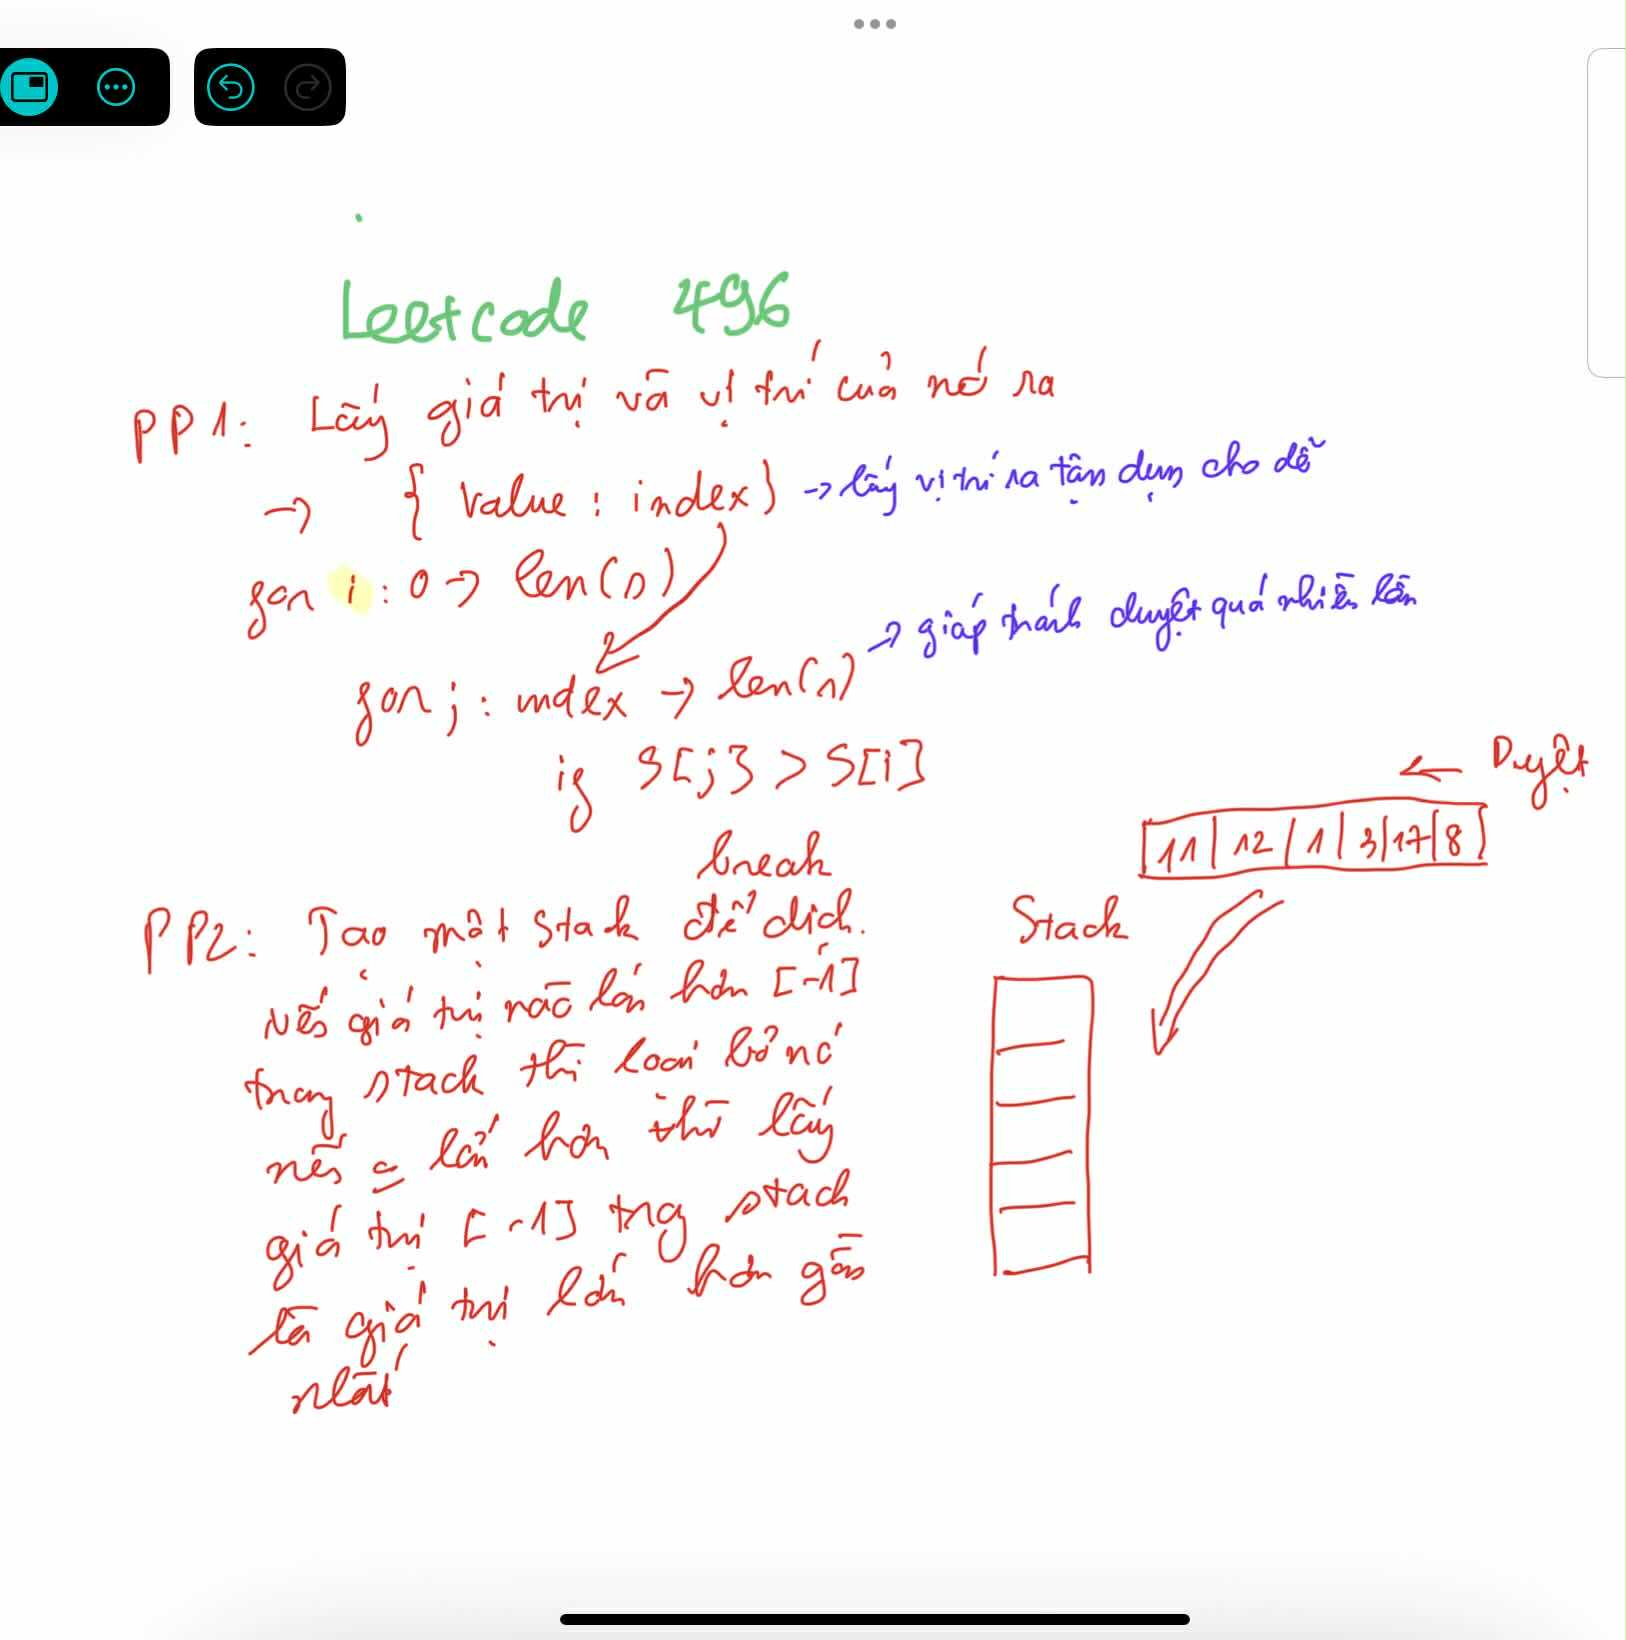 Leetcode 496
PP1: Lấy giá trị và vị trí của nó ra
→ { value : index } → lấy vị trí ra tận dụng cho dễ
for i : 0 → len(n)
for j : index → len(n) → giúp tránh duyệt quá nhiều lần
if S[j] > S[i]
break
← Duyệt
11 | 12 | 1 | 3 | 17 | 8
Stack
PP2: Tạo một Stack để
Nếu giá trị nào lớn hơn [-1]
trong stack thì loại bỏ nó
nếu lớn hơn thì lấy
giá trị [-1] trg stack
là giá trị lớn hơn gần
nhất